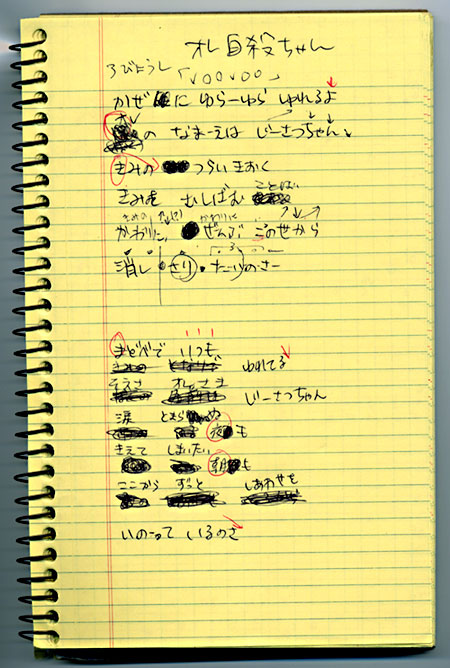 オレ自殺ちゃん
3びょうし
「VooVoo」
かぜ に ゆらーゆら ゆれるよ
オレ
の なまーえは じーさつちゃん
きみの つらい きおく
きみを むしばむ ことばい
きみの かわりに
かわりに ぜんぶ この世から
3
消し さり たいのさー
まどべで いつも ゆれてる
そうさ オレさま じーさつちゃん
涙 とまらぬ 夜も
きえて しまいたい 朝も
ここから ずっと しあわせを
いのって いるのさ